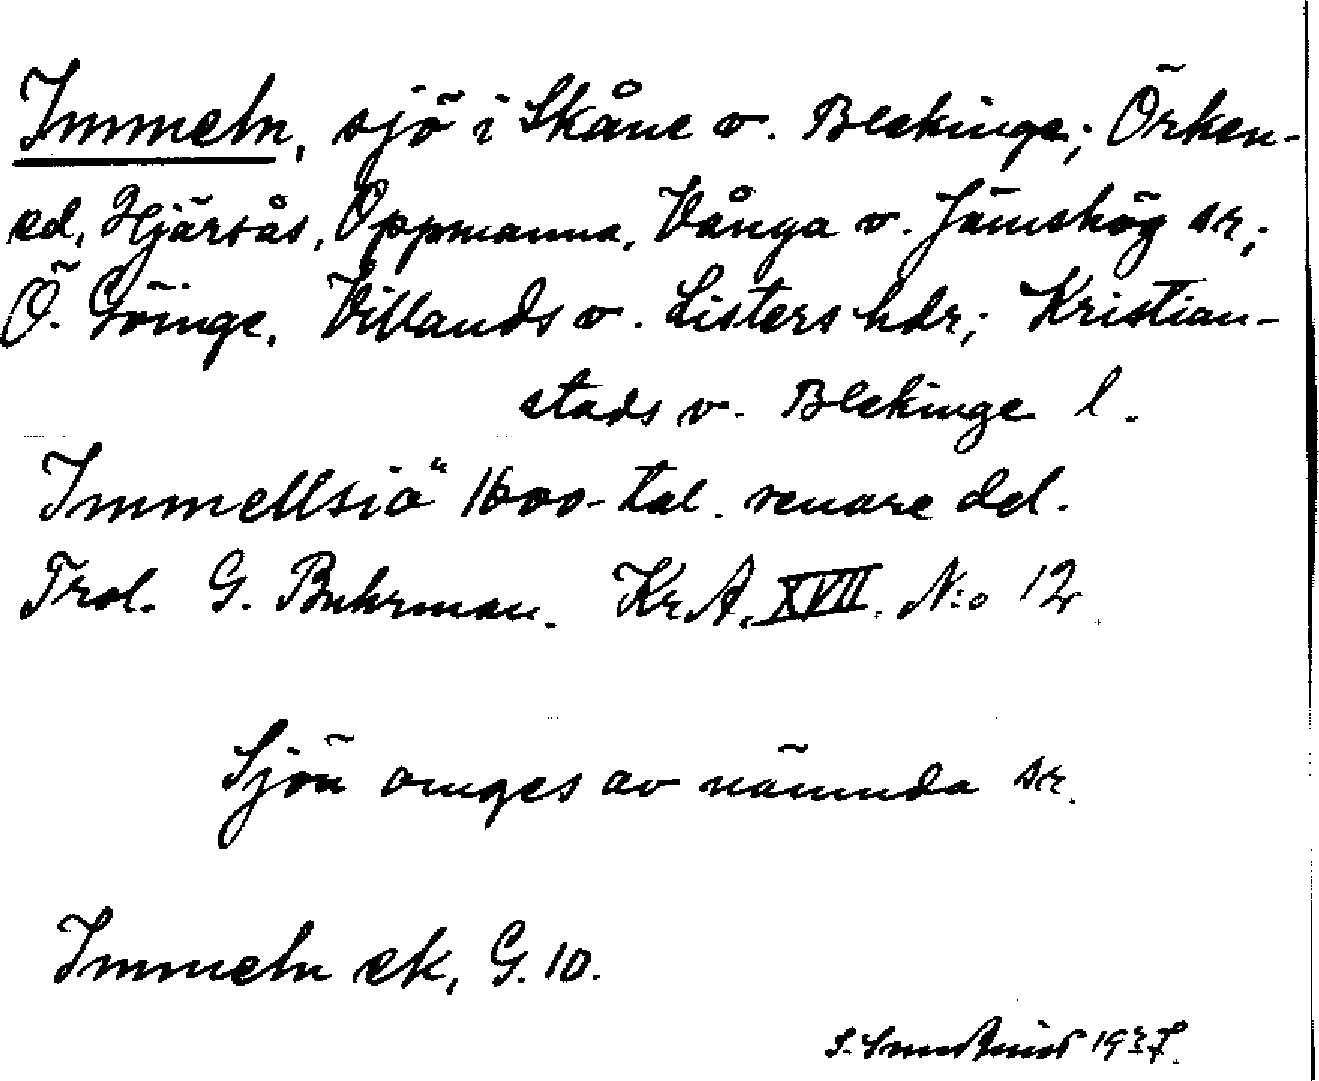 Immeln, sjö i Skåne o. Blekinge; Örken-
ed, Hjärsås, Oppmanna, Vånga o. Jämshög sr;
Ö. Göinge, Villands o. Listers hdr; Kristian-
stads o. Blekinge l.
Immellsiö" 1600-tal. senare del.
Trol. G. Buhrman. Kr A. XVII. N:o 12
Sjön omges av nämnda sr.
Immeln ek, G. 10.
1937.